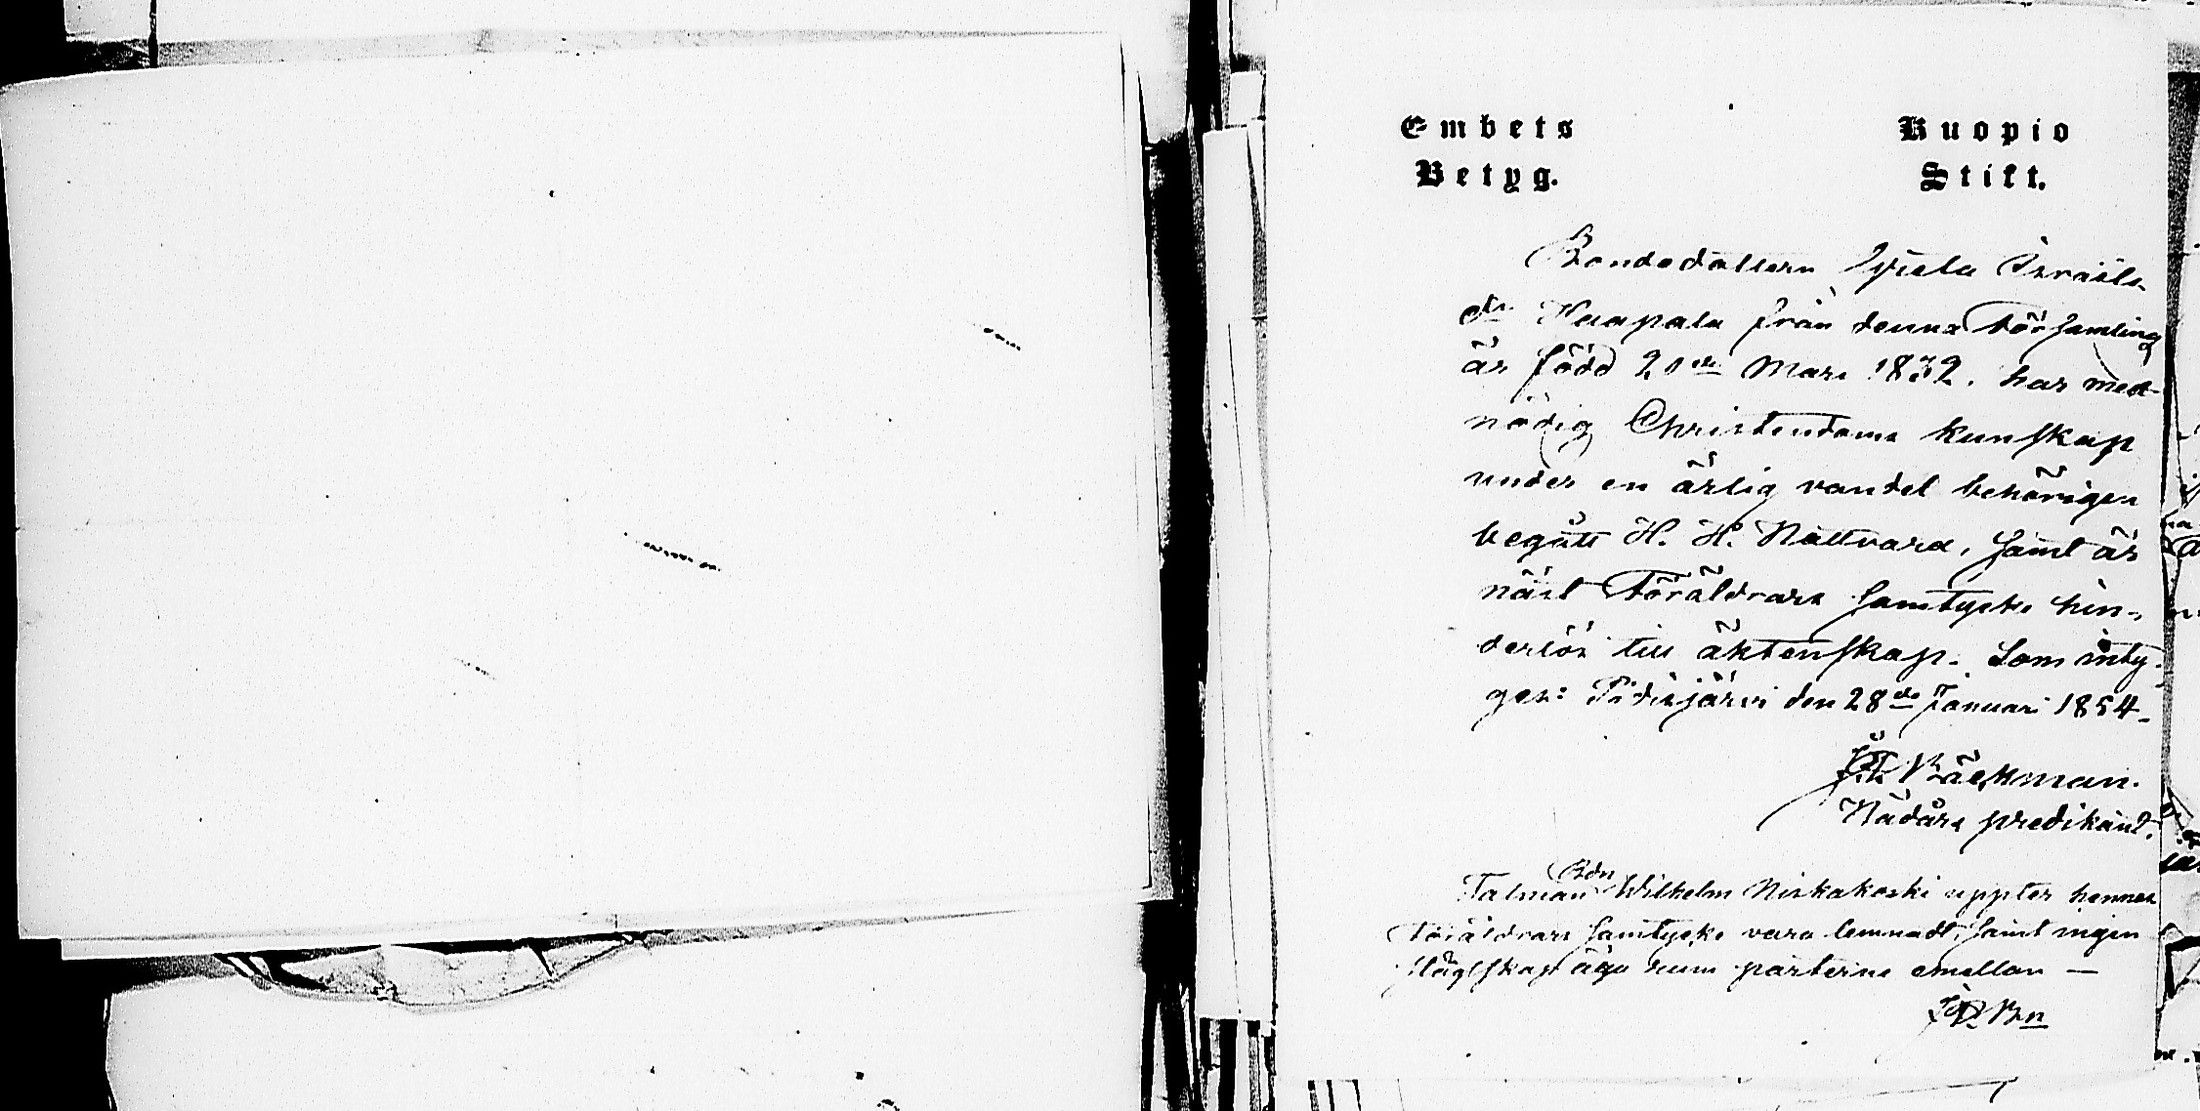 Embets Betyg.
Kuopio Stift.
Bondedottern Greta Israels
dr Haapala från denna Församling
är född 20de Mars 1832. har med
nödig Christendoms kunskap
under en ärlig vandel behörigen
begått H. H. Nattvard, samt är
näst Föräldrars samtycke hin-
derlös till äktenskap. Som inty-
gas: Pidisjärvi den 28de Januari 1854.
Bäckman.
Nådårs predikant.
Talman Bdn Wilhelm Niskakoski uppter hennes
Föräldrars samtycke vara lemnadt, samt ingen
slägtskap äga rum parterne emellan —
Bn